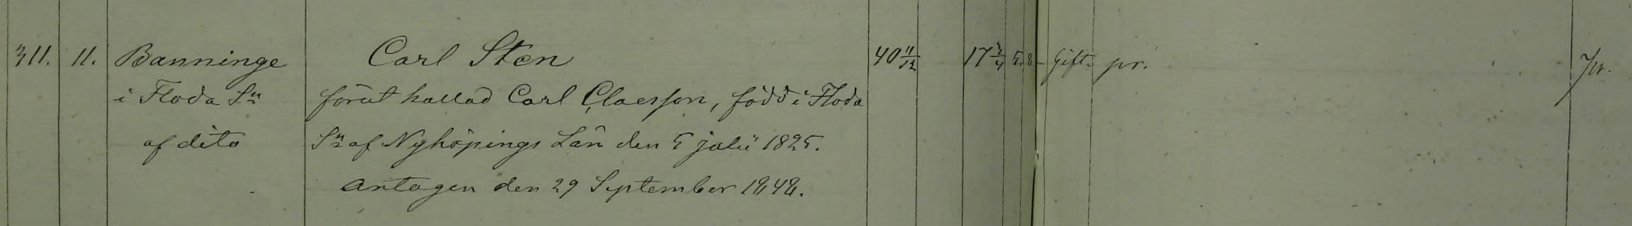 311. 11. Banninge Carl Sten 40 11/12 17 3/4 5. Gift pr. pr.
i Floda Sn förut kallad Carl Claesson, född i Floda
af dito Sn af Nyköpings Län den 5 julii 1825.
antagen den 29 September 1848.